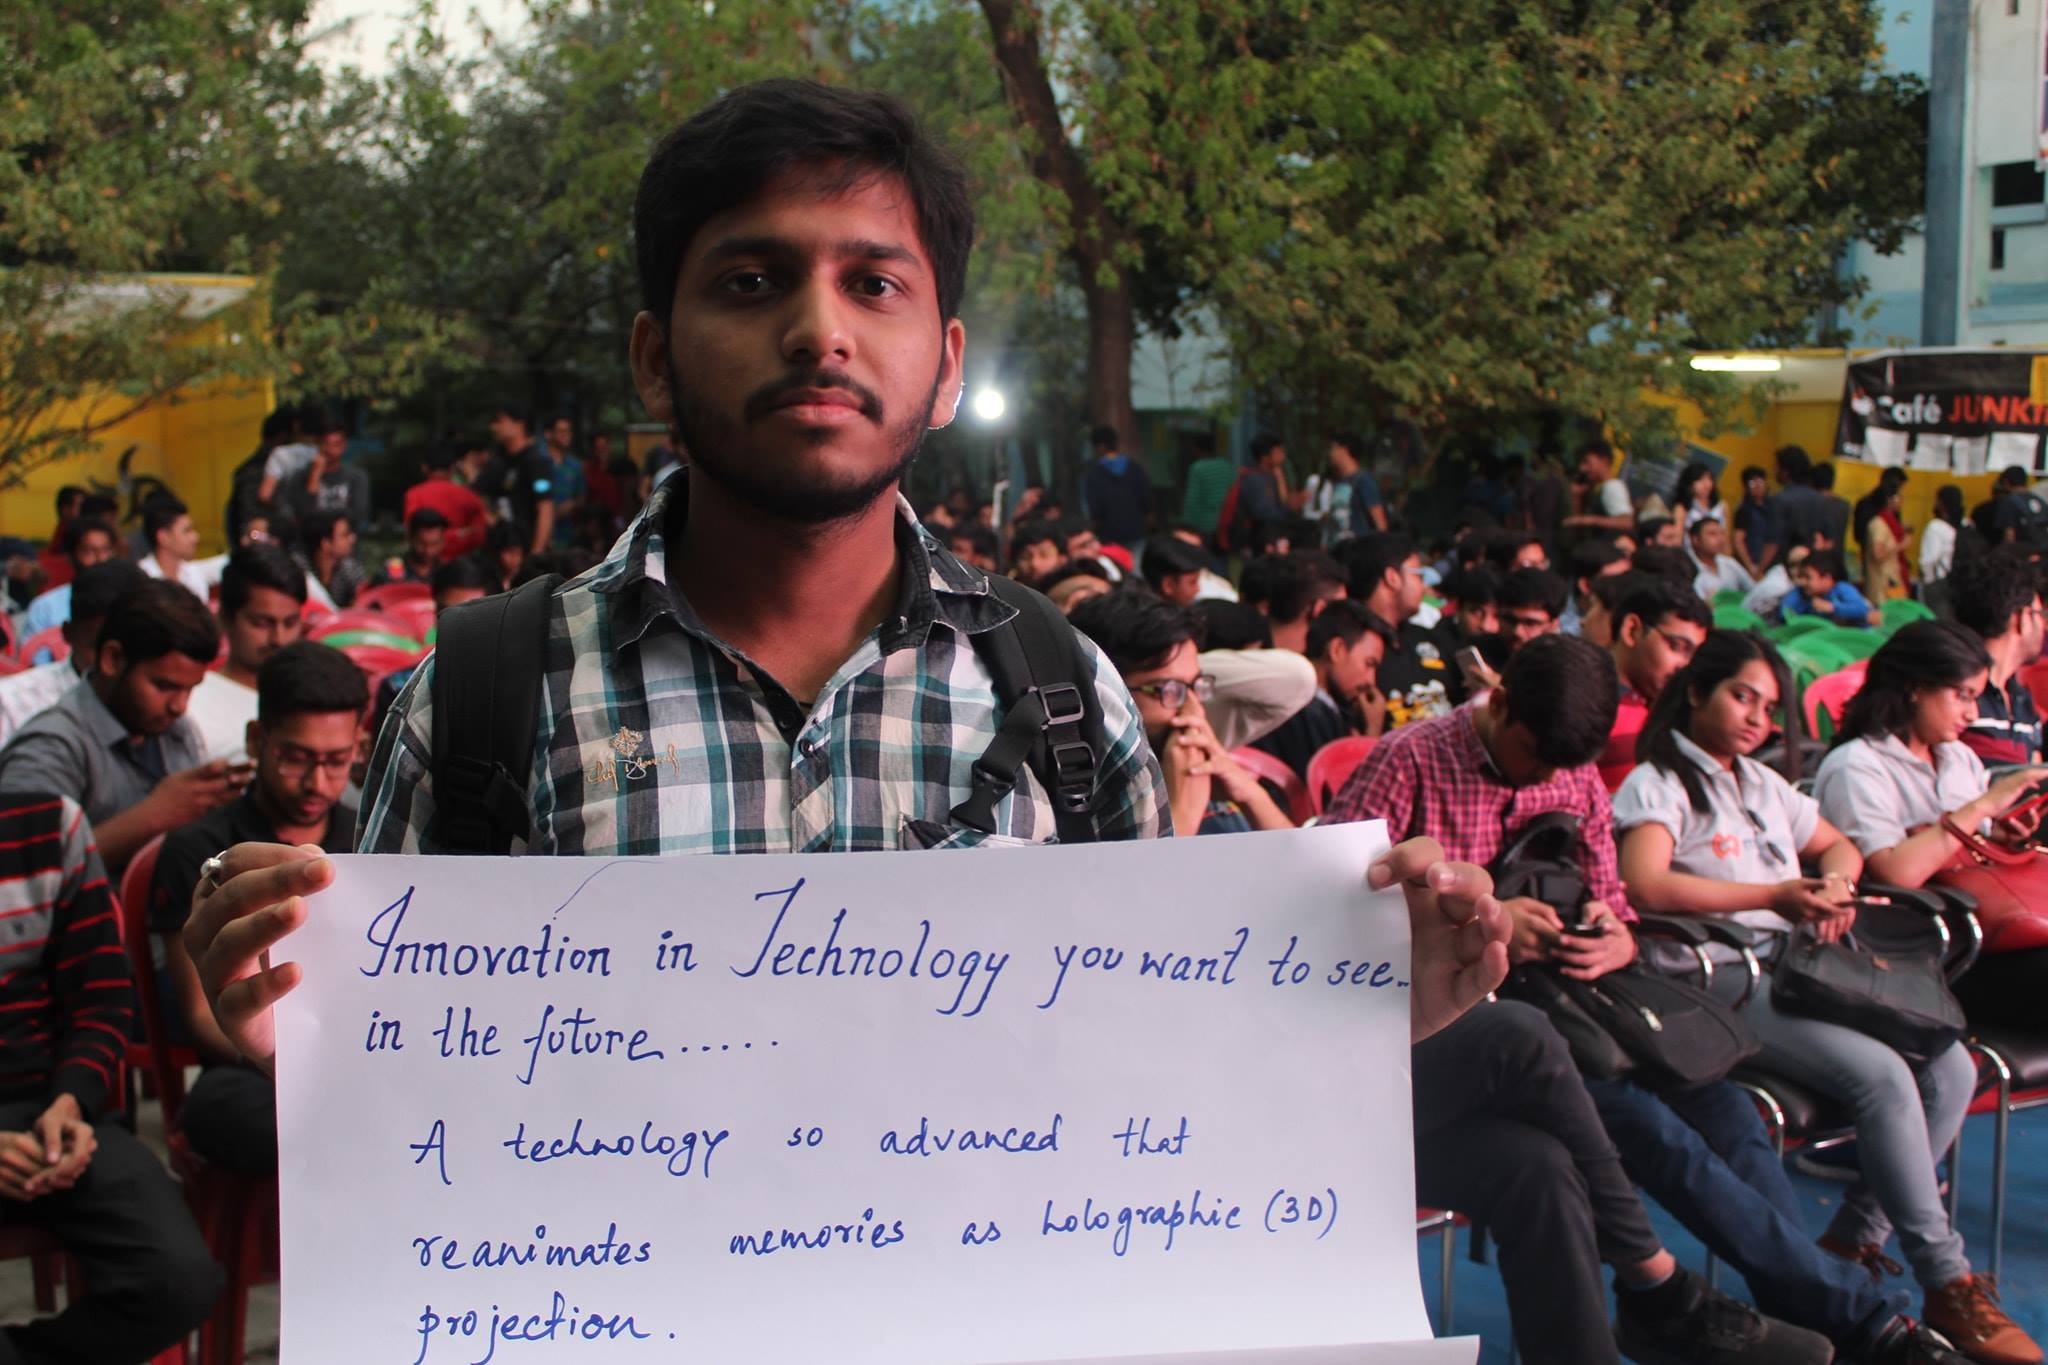 Café JUNK
Innovation in Technology you want to see..
in the future.....
A technology so advanced that
reanimates memories as holographic (3D)
projection.